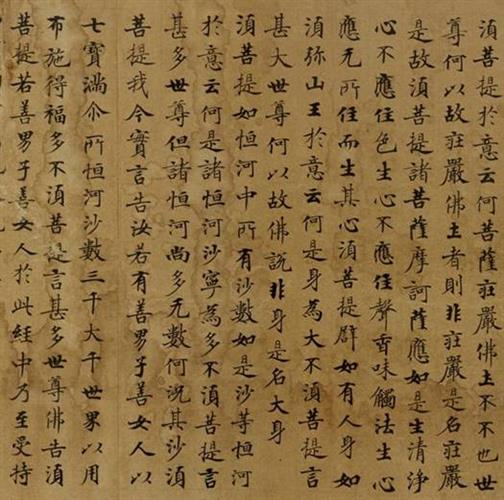 須菩提於意云何菩薩莊嚴佛土不不也世
尊何以故莊嚴佛土者則非莊嚴是名莊嚴
是故須菩提諸菩薩摩訶薩應如是生清淨
心不應住色生心不應住聲香味觸法生心
應无所住而生其心須菩提辟如有人身如
須弥山王於意云何是身為大不須菩提言
甚大世尊何以故佛說非身是名大身
須菩提如恒河中所有沙數如是沙等恒河
於意云何是諸恒河沙寧為多不須菩提言
甚多世尊但諸恒河尚多无數何況其沙須
菩提我今實言告汝若有善男子善女人以
七寶滿尒所恒河沙數三千大千世界以用
布施得福多不須菩提言甚多世尊佛告須
菩提若善男子善女人於此經中乃至受持